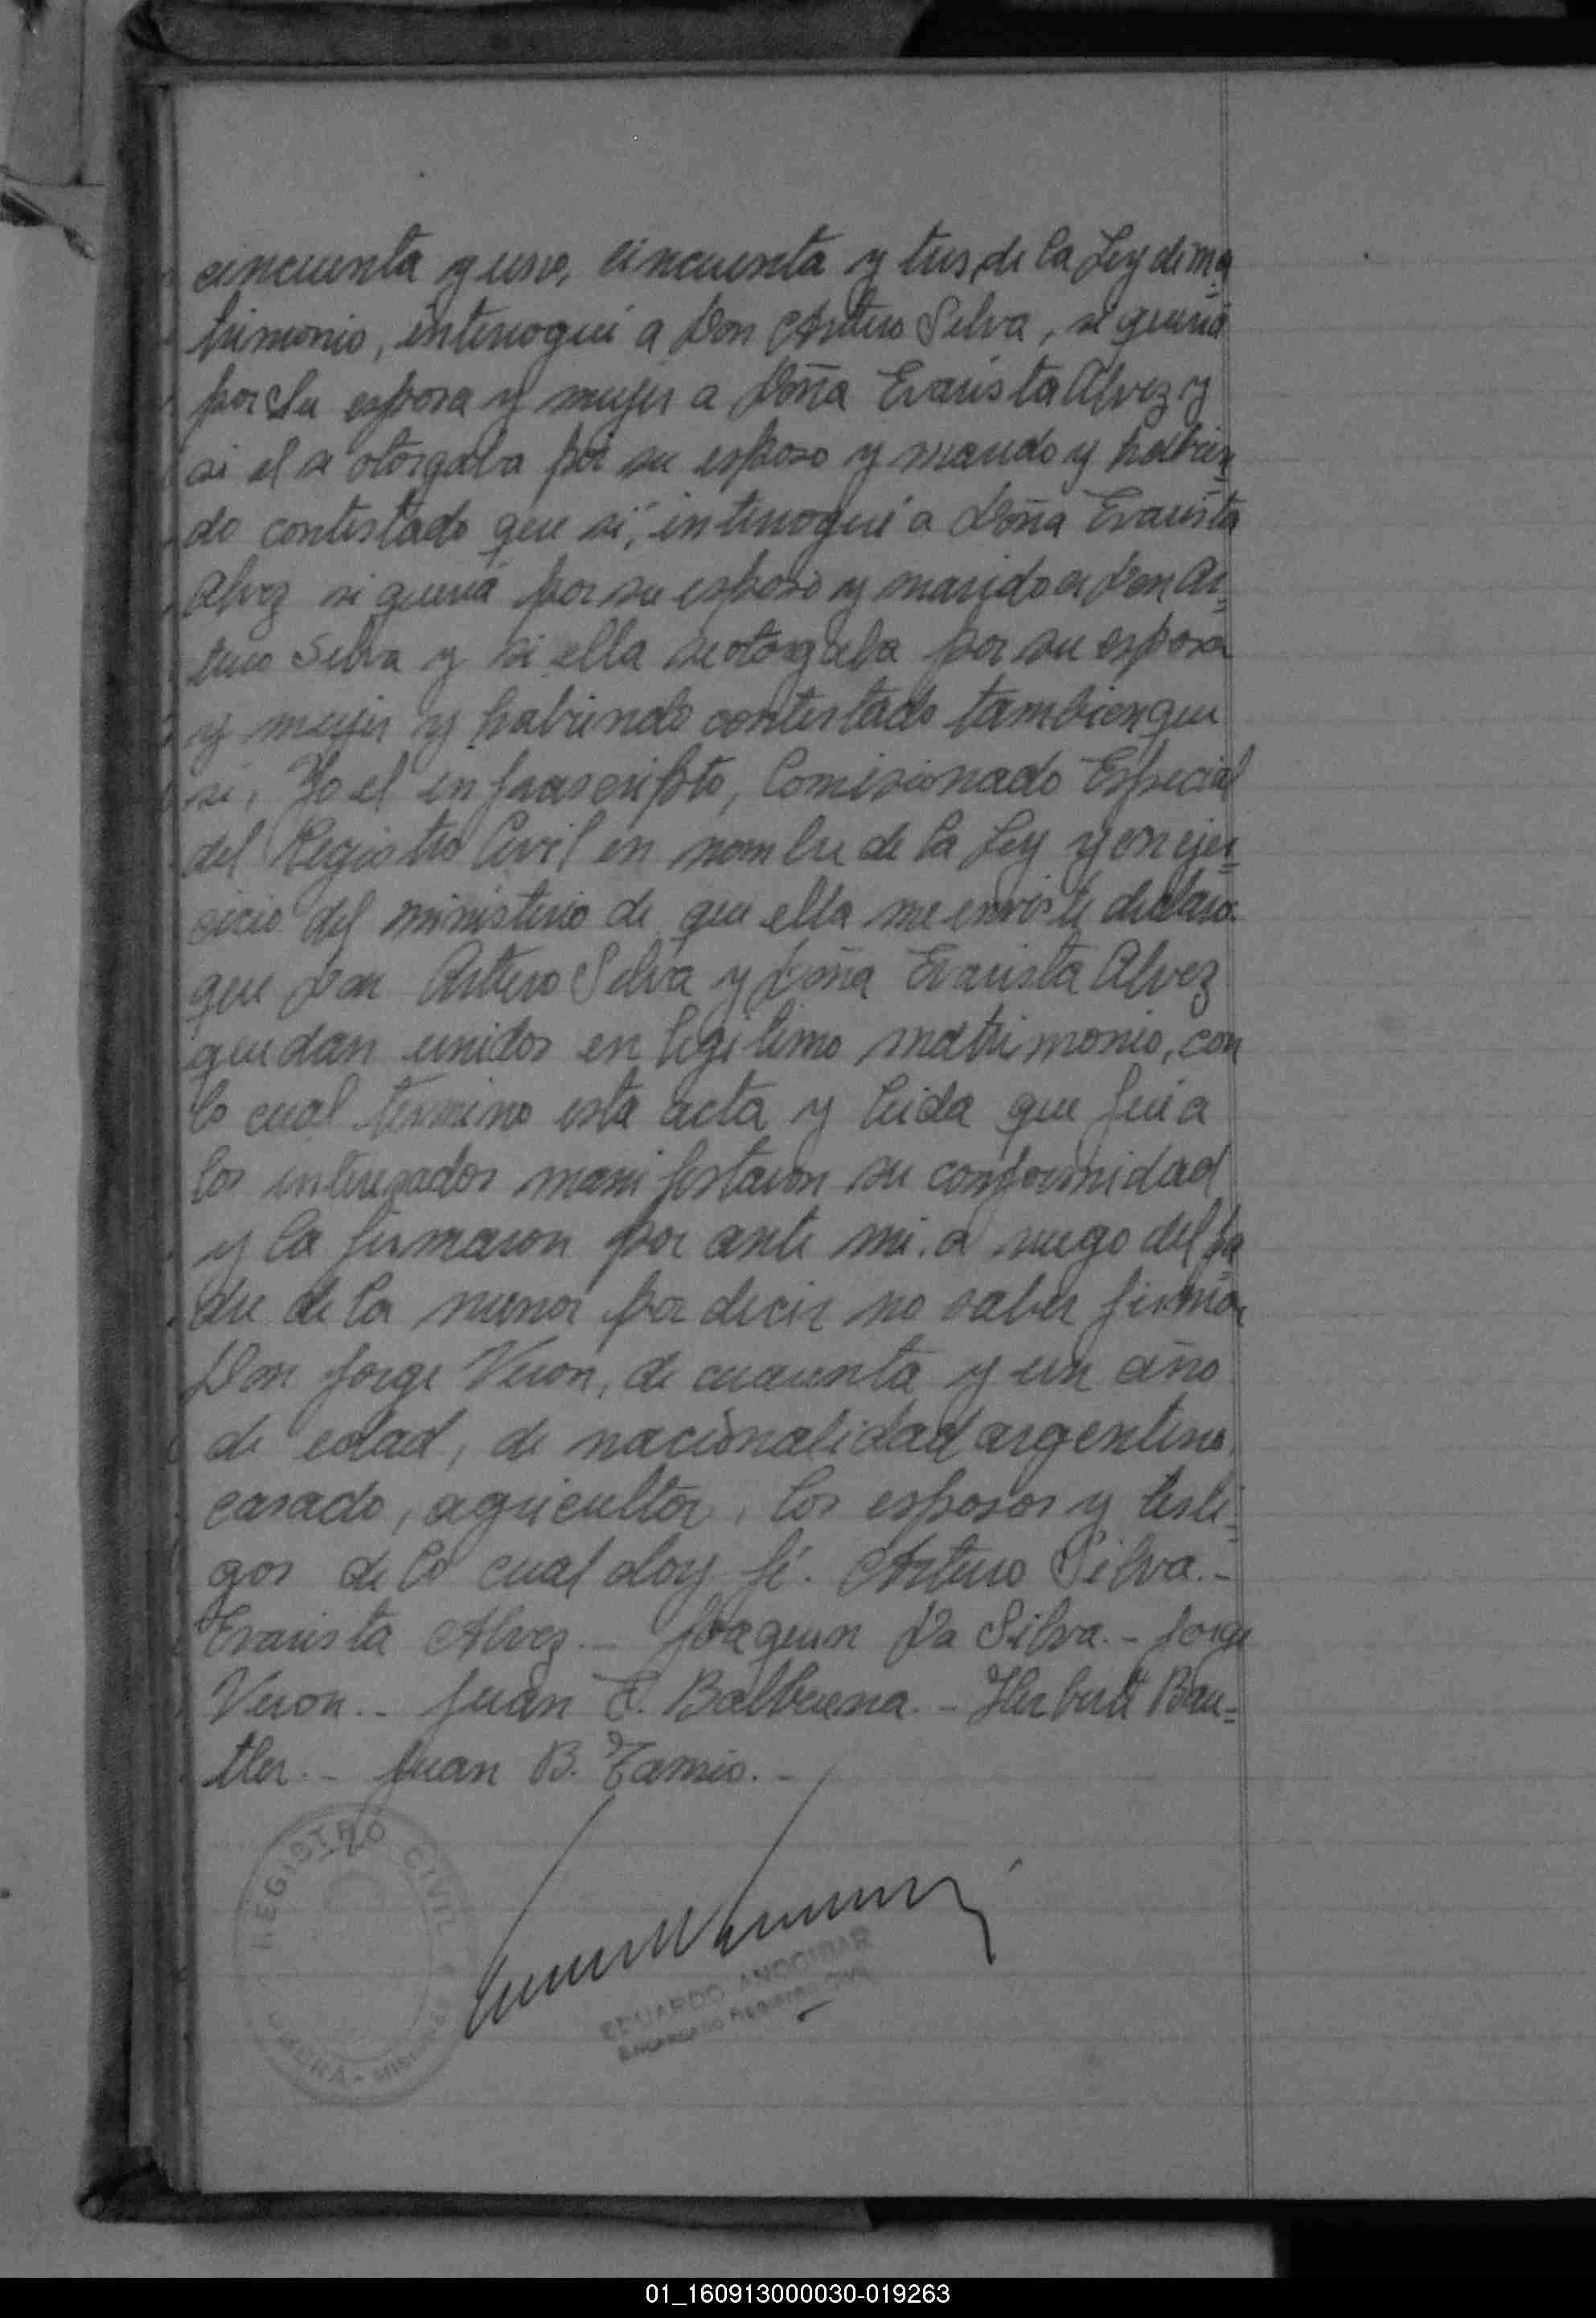 cincuenta y uno, cincuenta y tres, de la Ley de ma=
trimonio, interrogué a Don Arturo Silva, si queria
por su esposa y mujer a Doña Evarista Alvez y
si el se otorgaba por su esposo y marido y habien=
do contestado que si, interrogué a Doña Evarista
Alvez si queria por su esposo y marido a Don Ar=
turo Silva y si ella se otorgaba por su esposa
y mujer y habiendo contestado tambien que
si, Yo el infrascripto, Comisionado Especial
del Registro Civil en nombre de la Ley y en ejer=
cicio del ministerio de que ella me enviste declaro
que Don Arturo Silva y Doña Evarista Alvez
quedan unidos en legitimo matrimonio, con
lo cual termino esta acta y leida que fué a
los interesados manifestaron su conformidad
y la firmaron por ante mi. a ruego del pa=
dre de la menor por decir no saber firmar
Don Jorge Veron, de cuarenta y un año
de edad, de nacionalidad argentino,
casado, agricultor, los esposos y testi=
gos de lo cual doy fé. Arturo Silva.-
Evarista Alvez.- Joaquin Da Silva.- Jorge
Veron.- Juan E. Balbuena.- Herbert Bau=
tler.- Juan B. Tamis.-
REGISTRO CIVIL
EDUARDO ANOCIBAR
ENCARGADO REGISTRO CIVIL
01_160913000030-019263